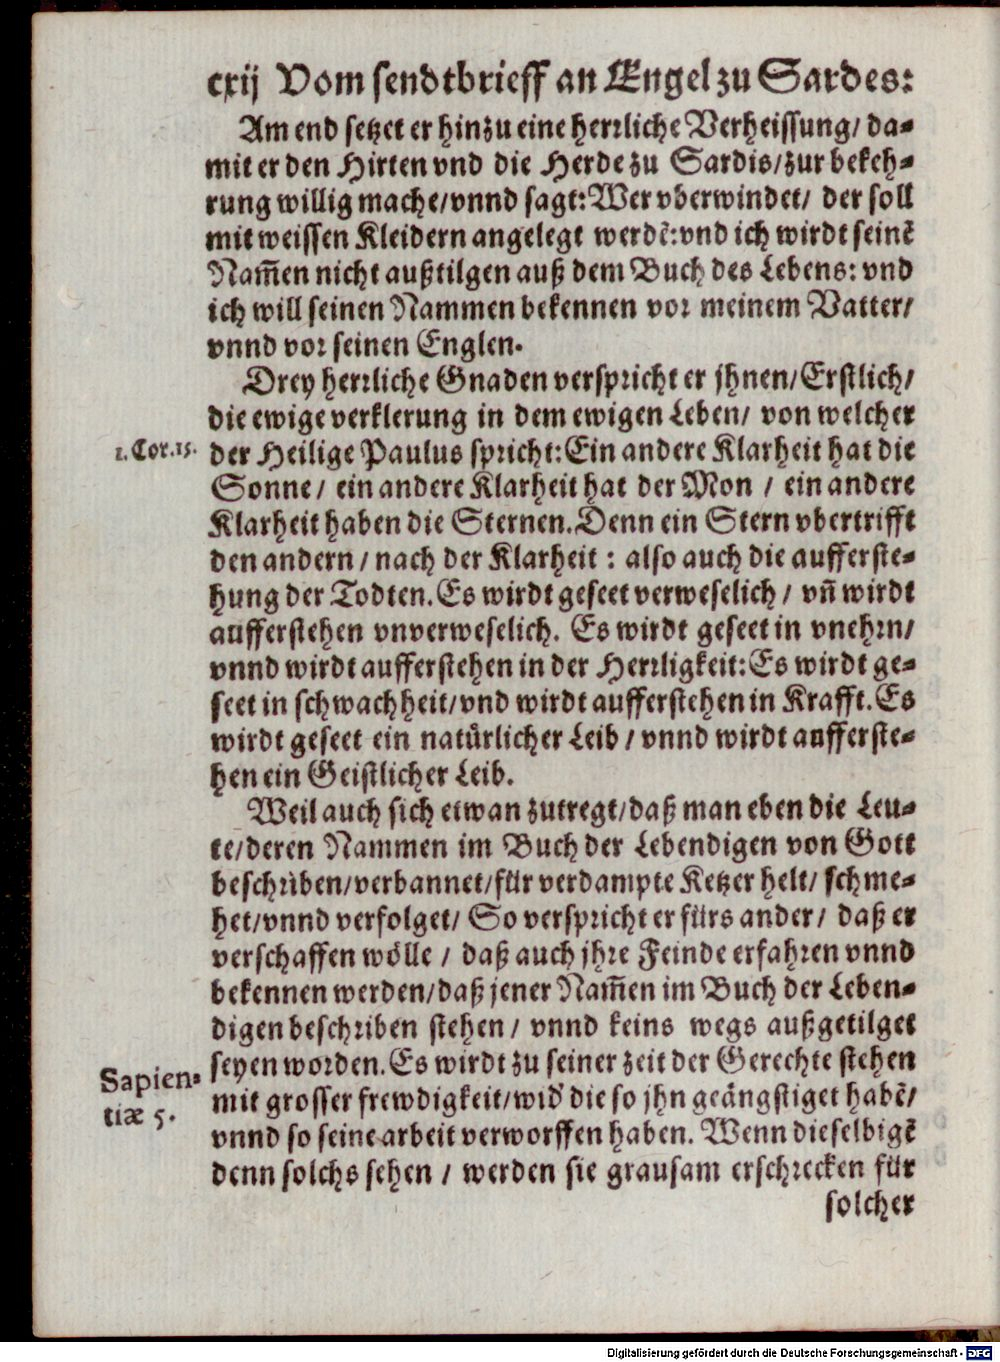 cxij Vom sendtbrieff an Engel zu Sardes:
Am end setzet er hinzu eine herrliche Verheissung/ da-
mit er den Hirten vnd die Herde zu Sardis/zur bekeh-
rung willig mache/vnnd sagt:Wer vberwindet/ der soll
mit weissen Kleidern angelegt werdẽ:vnd ich wirdt seinẽ
Nam̃en nicht außtilgen auß dem Buch des Lebens: vnd
ich will seinen Nammen bekennen vor meinem Vatter/
vnnd vor seinen Englen.
Drey herrliche Gnaden verspricht er jhnen/Erstlich/
die ewige verklerung in dem ewigen Leben/ von welcher
1. Cor. 15. der Heilige Paulus spricht:Ein andere Klarheit hat die
Sonne/ ein andere Klarheit hat der Mon / ein andere
Klarheit haben die Sternen.Denn ein Stern vbertrifft
den andern / nach der Klarheit : also auch die aufferste-
hung der Todten.Es wirdt geseet verweselich / vñ wirdt
aufferstehen vnverweselich. Es wirdt geseet in vnehrn/
vnnd wirdt aufferstehen in der Herrligkeit:Es wirdt ge-
seet in schwachheit/vnd wirdt aufferstehen in Krafft.Es
wirdt geseet ein natürlicher Leib / vnnd wirdt aufferste-
hen ein Geistlicher Leib.
Weil auch sich etwan zutregt/daß man eben die Leu-
te/deren Nammen im Buch der Lebendigen von Gott
beschriben/verbannet/für verdampte Ketzer helt/ schme-
het/vnnd verfolget/ So verspricht er fürs ander/ daß er
verschaffen wölle / daß auch jhre Feinde erfahren vnnd
bekennen werden/daß jener Nam̃en im Buch der Leben-
digen beschriben stehen / vnnd keins wegs außgetilget
seyen worden.Es wirdt zu seiner zeit der Gerechte stehen
Sapien-
tiæ 5.
mit grosser frewdigkeit/wid' die so jhn geängstiget habẽ/
vnnd so seine arbeit verworffen haben. Wenn dieselbigẽ
denn solchs sehen / werden sie grausam erschrecken für
solcher
Digitalisierung gefördert durch die Deutsche Forschungsgemeinschaft - DFG